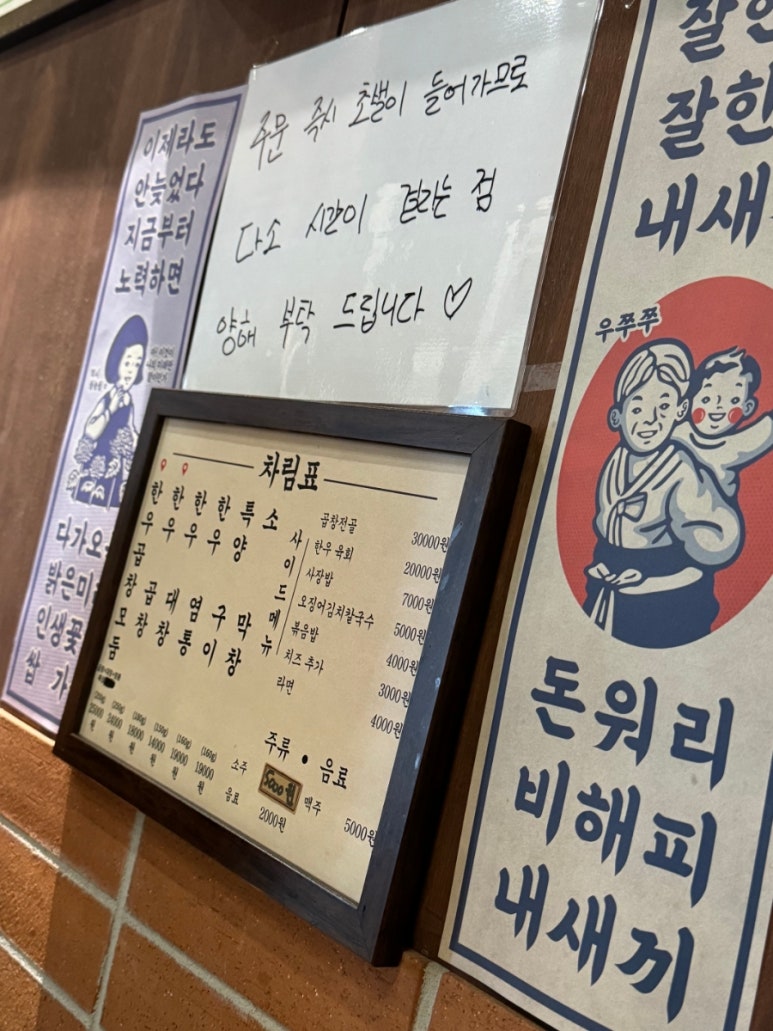 이제라도
안늦었다
지금부터
노력하면
다가오
밝은미
인생꽃
쌉 가
주문 즉시 초벌이 들어가므로
다소 시간이 걸리는 점
양해 부탁 드립니다 ♡
차림표
한우곱창모듬
한우곱창
한우대창
한우염통 14000원
특양구이 (160g) 19000원
소막창 (160g) 19000원
사이드메뉴
곱창전골 30000원
한우 육회 20000원
사장밥 7000원
오징어김치칼국수 5000원
볶음밥 4000원
치즈 추가 3000원
라면 4000원
주류 • 음료
소주 5000원 맥주 5000원
음료 2000원
잘한
잘한
내새
우쭈쭈
돈워리
비해피
내새끼